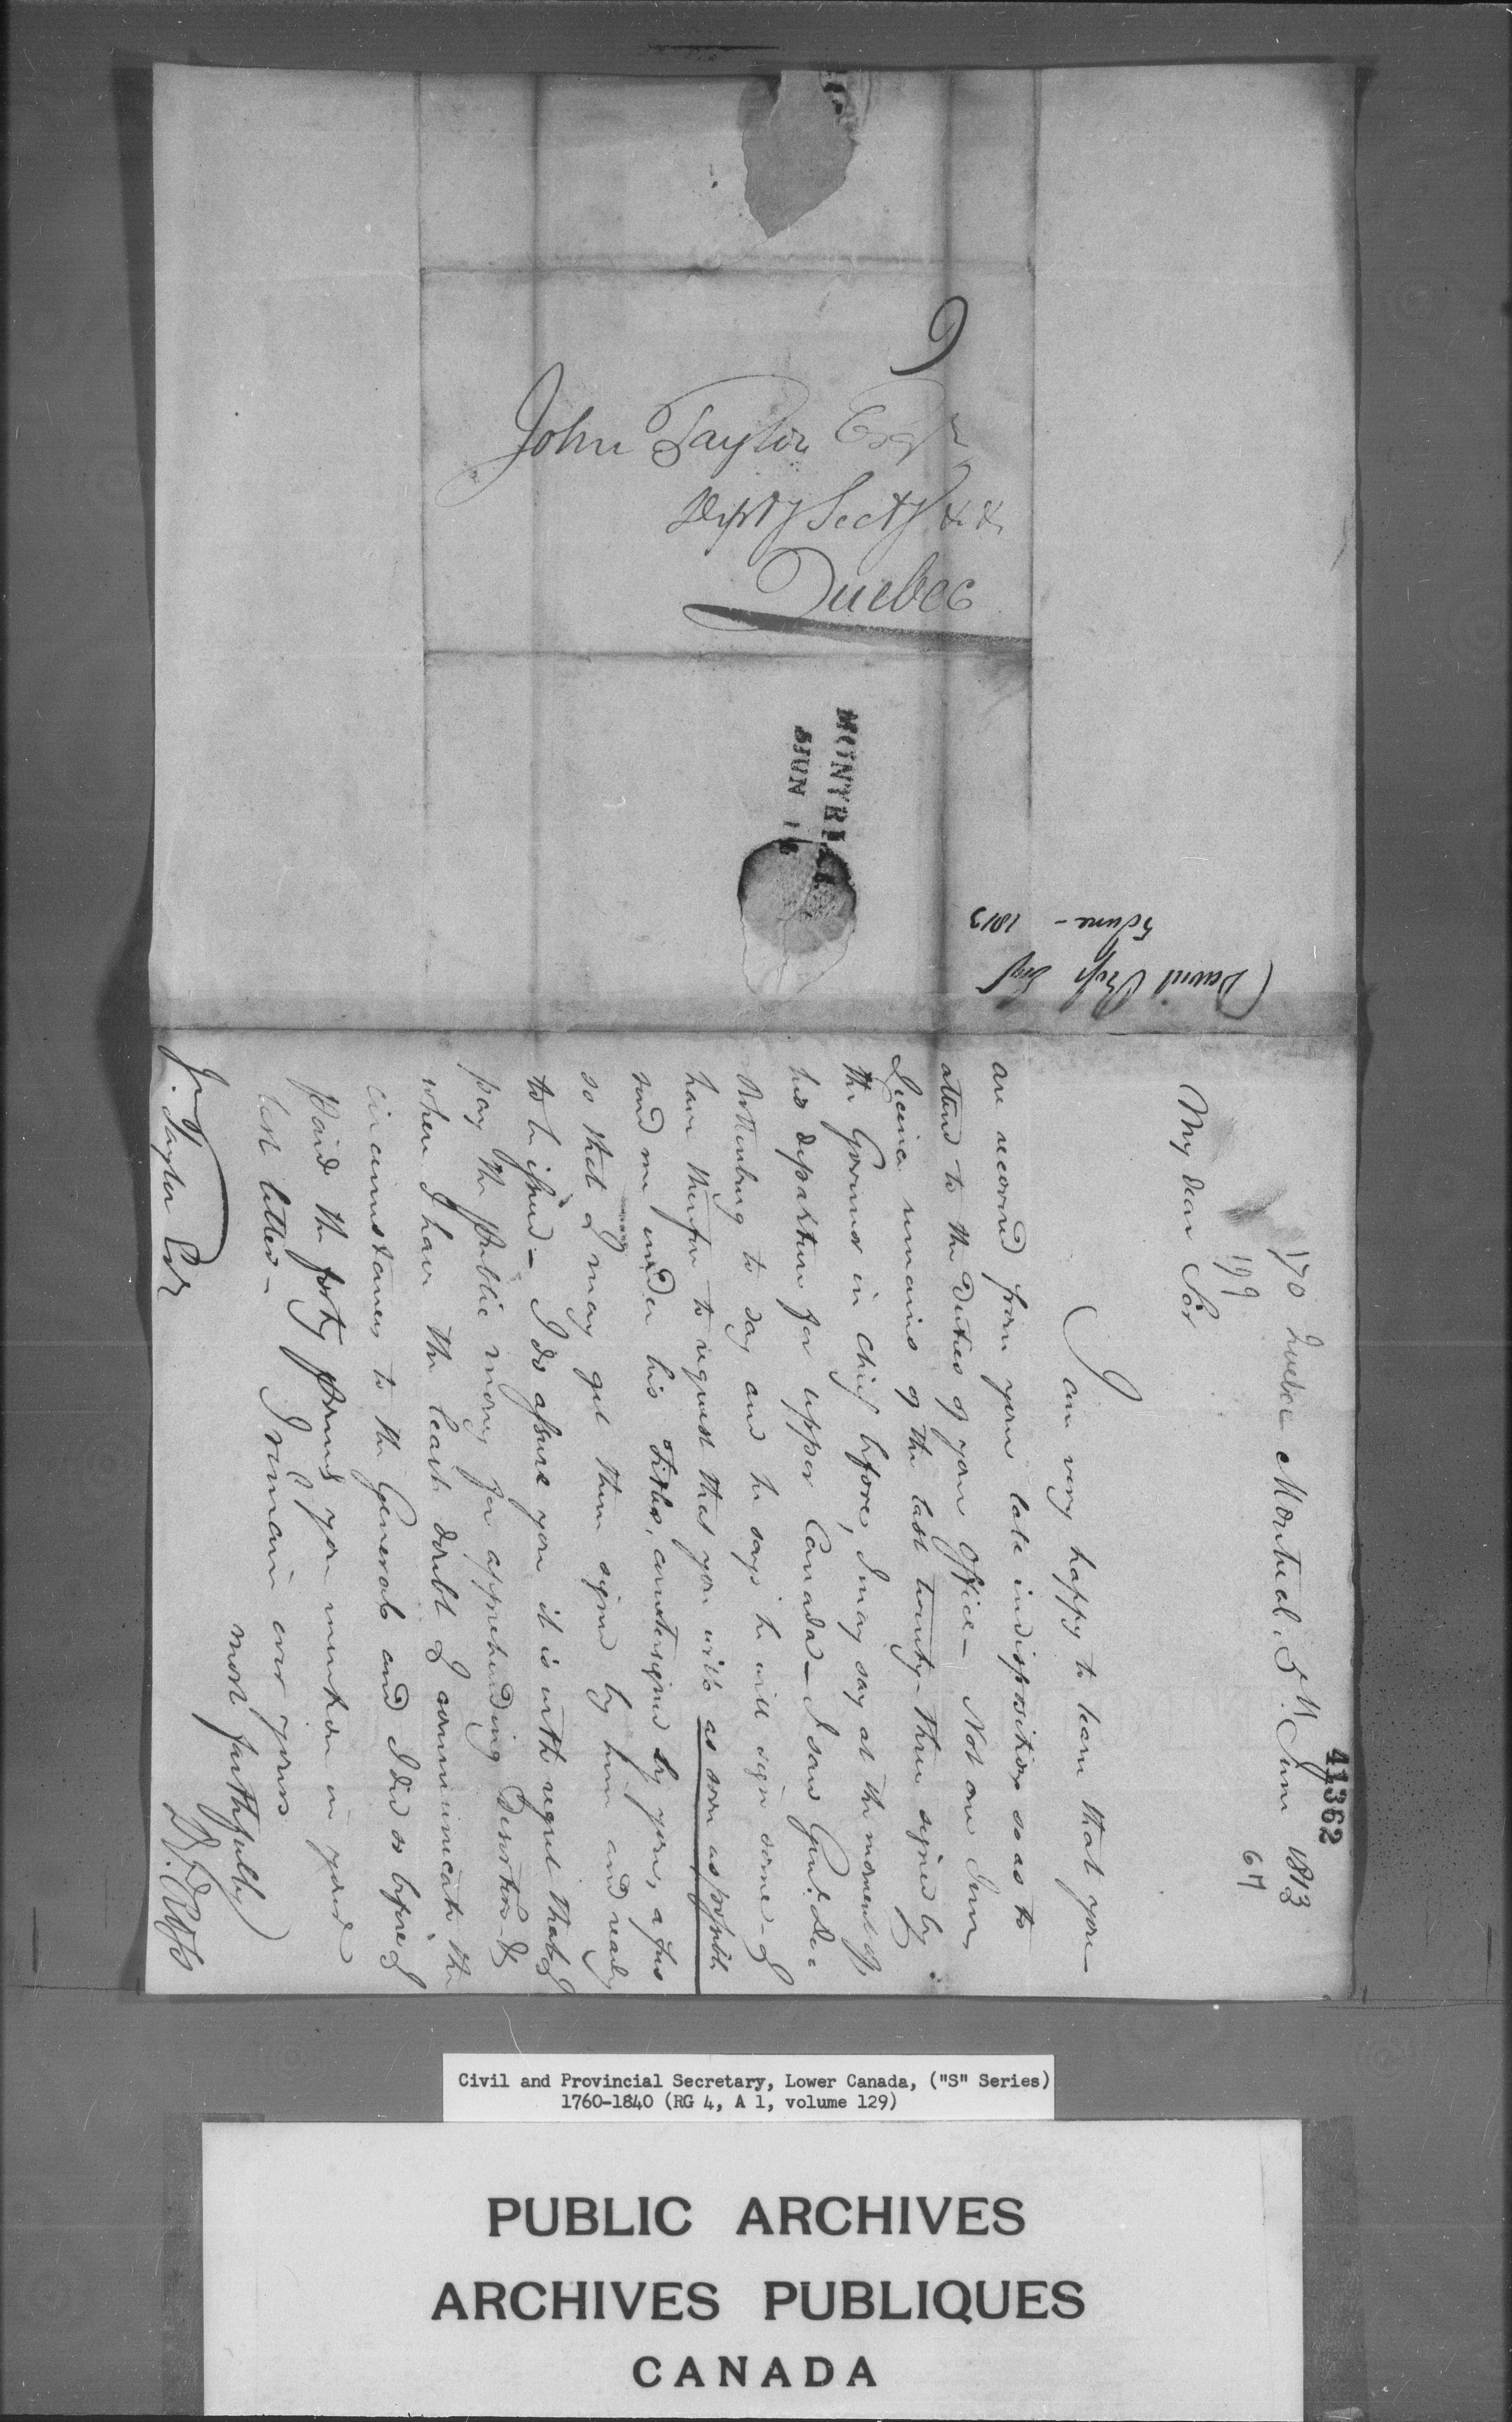 John Taylor Esqr
Depty Secty &c &c
Quebec
MONTREAL
5 JUN
David Ross Esqr
5 June - 1813
41362
170 Quebec Montreal. 5th June 1813
199
64
My dear Sir
I am very happy to learn that you
are recovered from your late indisposition so as to
attend to the Duties of your Office - Not one Tavern
Licence remains of the last twenty three signed by
the Governor in Chief before, I may say at the moment of
his departure for upper Canada - I saw Genl. De
Rottenburg to day and he says he will sign some - I
have therefore to request that you will as soon as possible
send me under his Titles, countersigned by you, a few
so that I may get them signed by him and ready
to be issued - I do assure you it is with regret that I
pay the Public money for apprehending Deserters &
where I have the least doubt I communicate the
circumstances to the Generals and I did so before I
paid the forty pounds you mention in your
last letter -
I remain ever yours
most faithfully
D. Ross
J. Taylor Esqr
Civil and Provincial Secretary, Lower Canada, ("S" Series)
1760-1840 (RG 4, A 1, volume 129)
PUBLIC ARCHIVES
ARCHIVES PUBLIQUES
CANADA